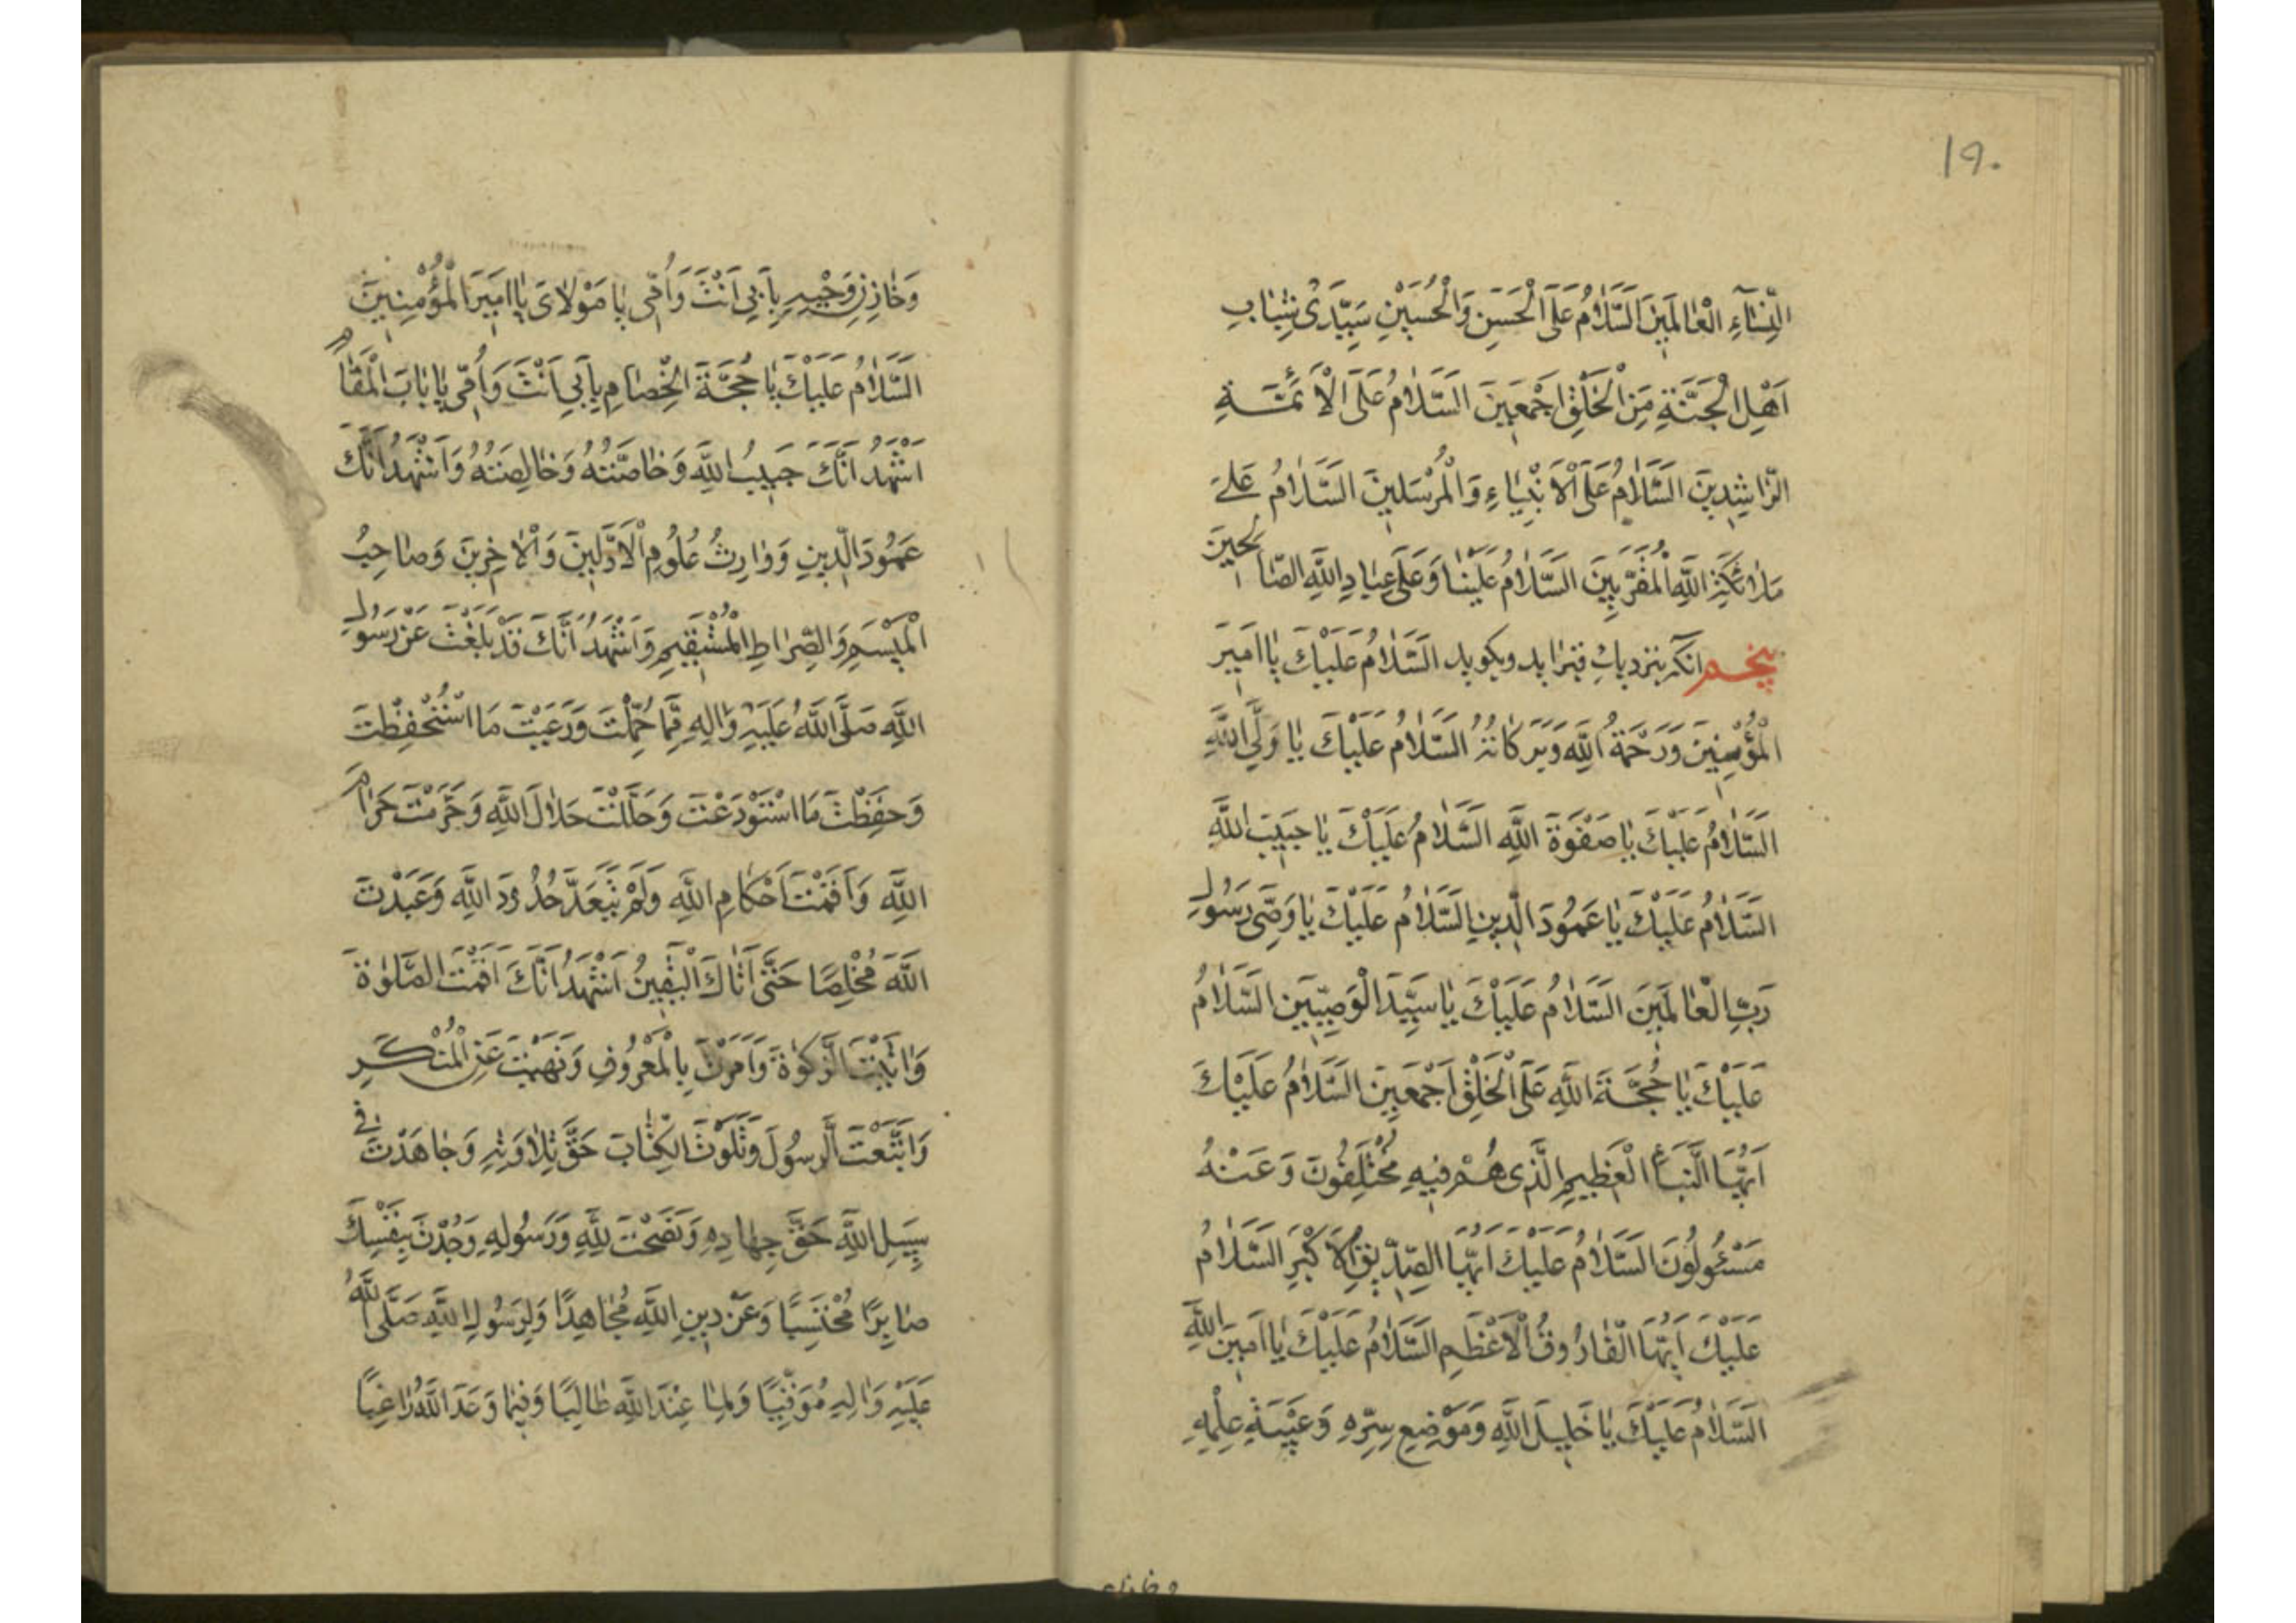 ۱۹۰
النِّسَآءِ الْعٰالَمينَ السَّلٰامُ عَلَى الْحَسَنِ وَالْحُسَيْنِ سَيِّدَىْ شَبٰابِ
اَهْلِ الْجَنَّةِ مِنَ الْخَلْقِ اَجْمَعينَ السَّلٰامُ عَلَى الْاَئِمَّةِ
الرّٰاشِدينَ السَّلٰامُ عَلَى الْاَنْبِيٰاءِ وَالْمُرْسَلينَ السَّلٰامُ عَلىٰ
مَلٰائِكَةِ اللّٰهِ الْمُقَرَّبينَ السَّلٰامُ عَلَيْنٰا وَعَلىٰ عِبٰادِ اللّٰهِ الصّٰالِحينَ
پنجم انکه بنزدیك قبر اید وبکوید السَّلٰامُ عَلَيْكَ يٰا اَميرَ
الْمُؤْمِنينَ وَرَحْمَةُ اللّٰهِ وَبَرَكٰاتُهُ السَّلٰامُ عَلَيْكَ يٰا وَلِيَّ اللّٰهِ
السَّلٰامُ عَلَيْكَ يٰا صَفْوَةَ اللّٰهِ السَّلٰامُ عَلَيْكَ يٰا حَبيبَ اللّٰهِ
السَّلٰامُ عَلَيْكَ يٰا عَمُودَ الدّينِ السَّلٰامُ عَلَيْكَ يٰا وَصِىَّ رَسُولِ
رَبِّ الْعٰالَمينَ السَّلٰامُ عَلَيْكَ يٰا سَيِّدَ الْوَصِيّينَ السَّلٰامُ
عَلَيْكَ يٰا حُجَّةَ اللّٰهِ عَلَى الْخَلْقِ اَجْمَعينَ السَّلٰامُ عَلَيْكَ
اَيُّهَا النَّبَأُ الْعَظيمِ الَّذى هُمْ فيهِ مُخْتَلِفُونَ وَعَنْهُ
مَسْئُولُونَ السَّلٰامُ عَلَيْكَ اَيُّهَا الصِّدّيقِ الْاَكْبَرِ السَّلٰامُ
عَلَيْكَ اَيُّهَا الْفٰارُوقُ الْاَعْظَمِ السَّلٰامُ عَلَيْكَ يٰا اَمينَ اللّٰهِ
السَّلٰامُ عَلَيْكَ يٰا خَليلَ اللّٰهِ وَمَوْضِعِ سِرِّهِ وَعَيْبَةِ عِلْمِهِ
وخازن
وَخٰازِنِ وَحْيِهِ بِاَبى اَنْتَ وَاُمّى يٰا مَوْلٰاىَ يٰا اَميرَ الْمُؤْمِنينَ
السَّلٰامُ عَلَيْكَ يٰا حُجَّةَ الْخِصٰامِ بِاَبى اَنْتَ وَاُمّى يٰا بٰابَ الْمَقٰامِ
اَشْهَدُ اَنَّكَ حَبيبُ اللّٰهِ وَخٰاصَّتُهُ وَخٰالِصَتُهُ وَاَشْهَدُ اَنَّكَ
عَمُودَ الدّينِ وَوٰارِثُ عُلُومِ الْاَوَّلينَ وَالْاٰخِرينَ وَصٰاحِبُ
الْميسَمِ وَالصِّرٰاطِ الْمُسْتَقيمِ وَاَشْهَدُ اَنَّكَ قَدْ بَلَغْتَ عَنْ رَسُولِ
اللّٰهِ صَلَّى اللّٰهُ عَلَيْهِ وَاٰلِهِ مٰا حُمِّلْتَ وَرَعَيْتَ مَا اسْتُحْفِظْتَ
وَحَفِظْتَ مَا اسْتُوْدِعْتَ وَحَلَّلْتَ حَلٰالَ اللّٰهِ وَحَرَّمْتَ حَرٰامَ
اللّٰهِ وَاَقَمْتَ اَحْكٰامِ اللّٰهِ وَلَمْ تَتَعَدَّ حُدُودَ اللّٰهِ وَعَبَدْتَ
اللّٰهَ مُخْلِصًا حَتّٰى اَتٰاكَ الْيَقينُ اَشْهَدُ اَنَّكَ اَقَمْتَ الصَّلٰوةَ
وَاٰتَيْتَ الزَّكٰوةَ وَاَمَرْتَ بِالْمَعْرُوفِ وَنَهَيْتَ عَنِ الْمُنْكَرِ
وَاتَّبَعْتَ الرَّسُولَ وَتَلَوْتَ الْكِتٰابَ حَقَّ تِلٰاوَتِهِ وَجٰاهَدْتَ فى
سَبيلِ اللّٰهِ حَقَّ جِهٰادِهِ وَنَصَحْتَ لِلّٰهِ وَرَسُولِهِ وَجُدْتَ بِنَفْسِكَ
صٰابِرًا مُحْتَسِبًا وَعَنْ دينِ اللّٰهِ مُجٰاهِدًا وَلِرَسُولِ اللّٰهِ صَلَّى اللّٰهُ
عَلَيْهِ وَاٰلِهِ مُوَقِّيًا وَلِمٰا عِنْدَ اللّٰهِ طٰالِبًا وَفيمٰا وَعَدَ اللّٰهُ رٰاغِبًا